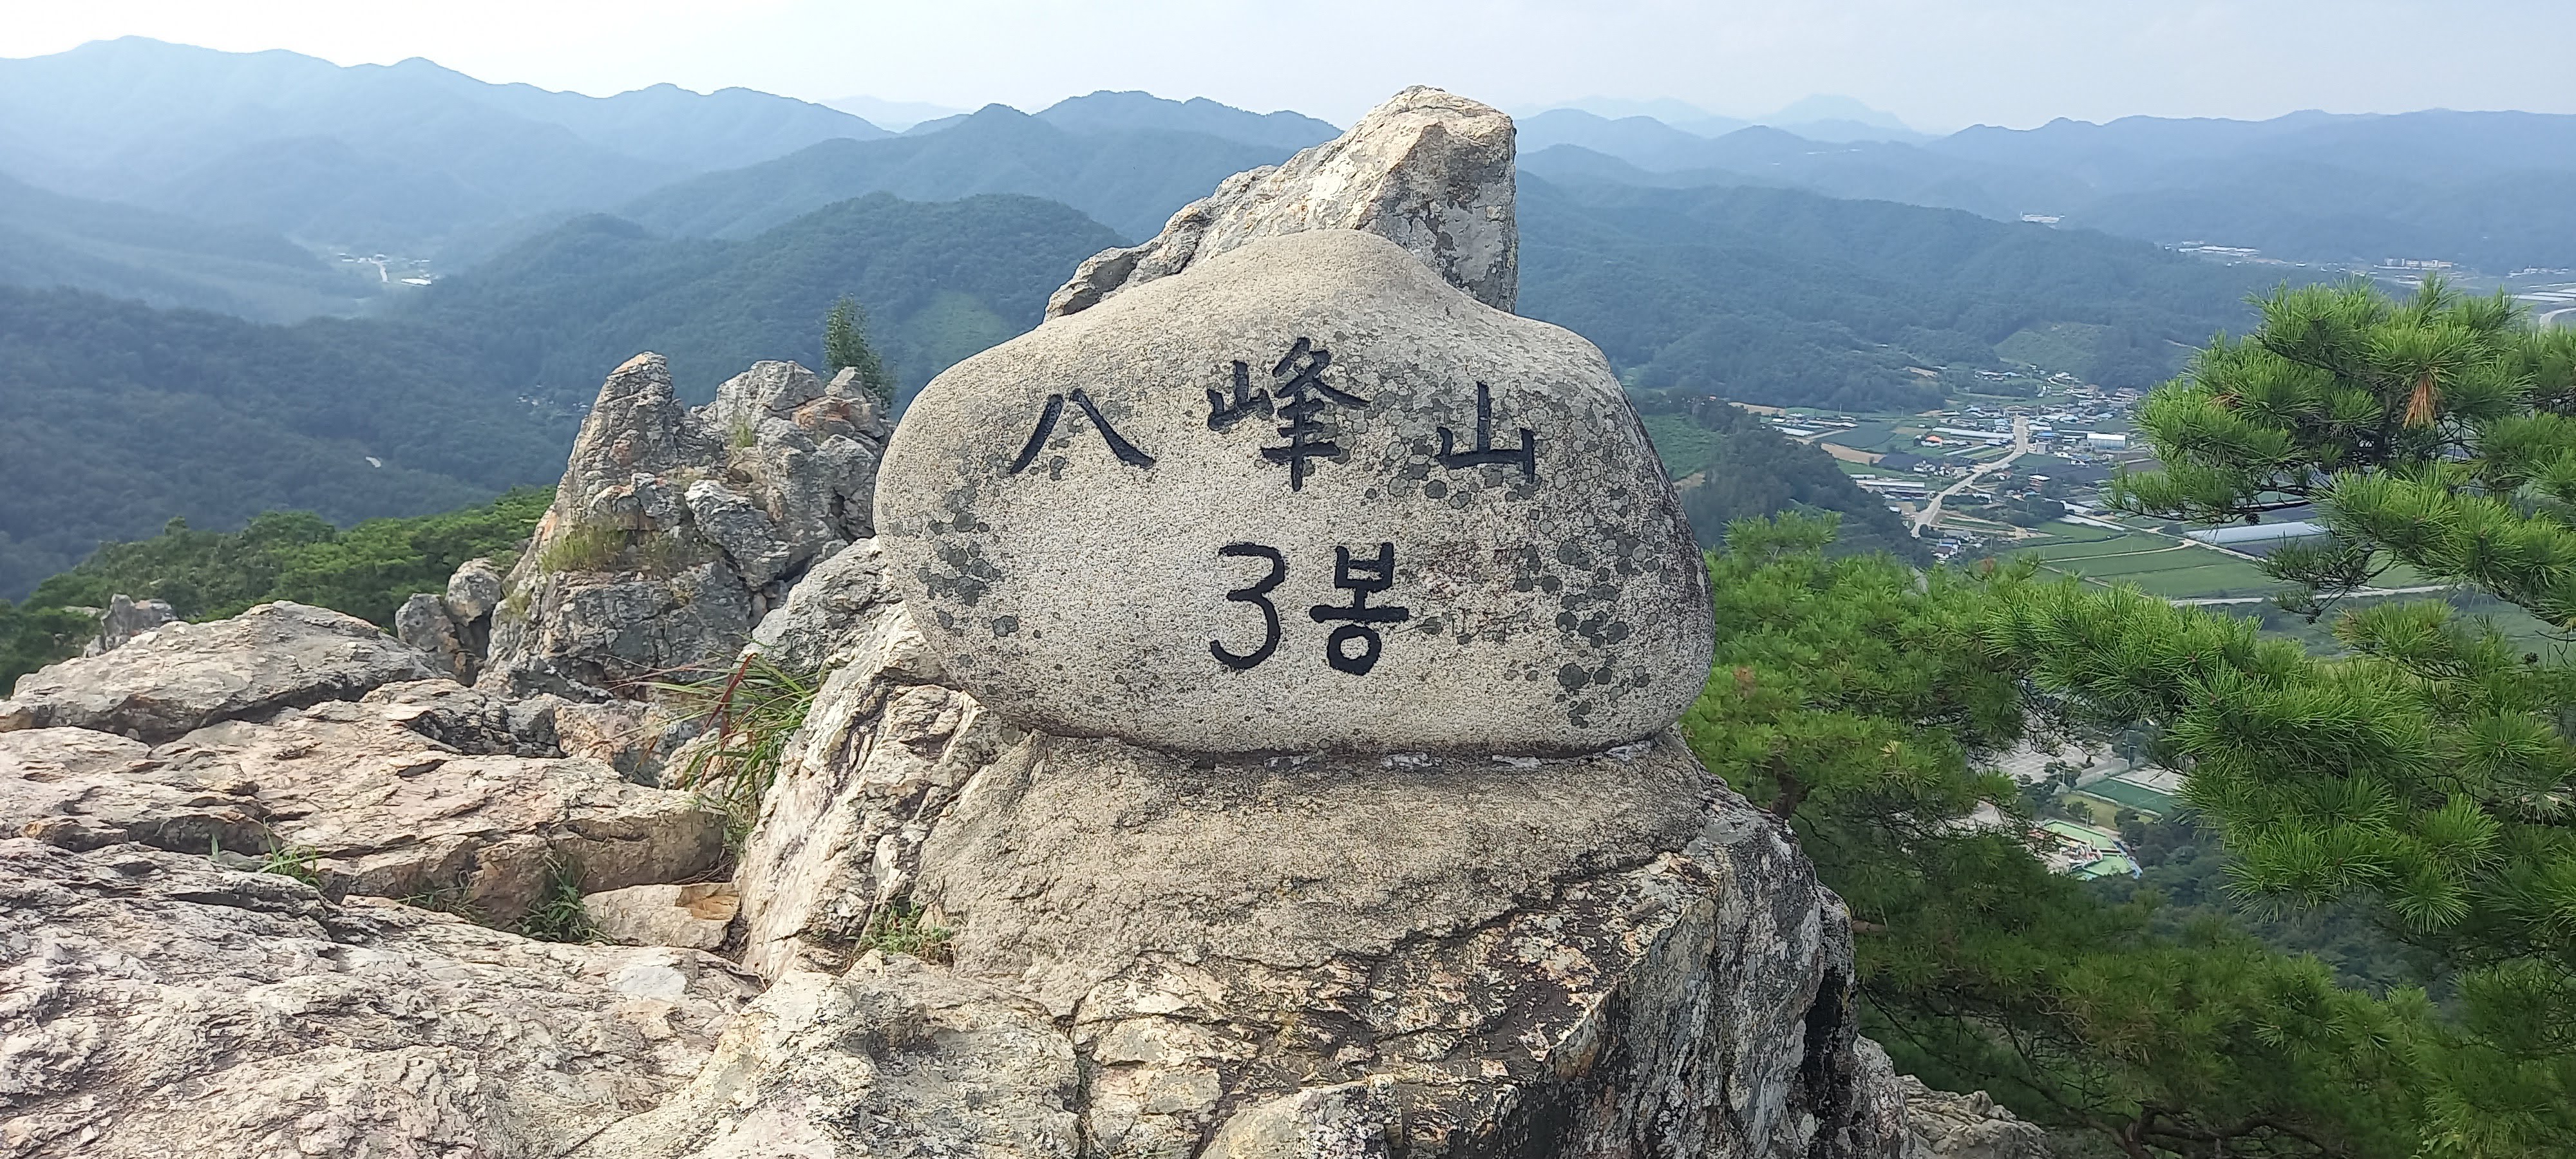 八峰山
3봉